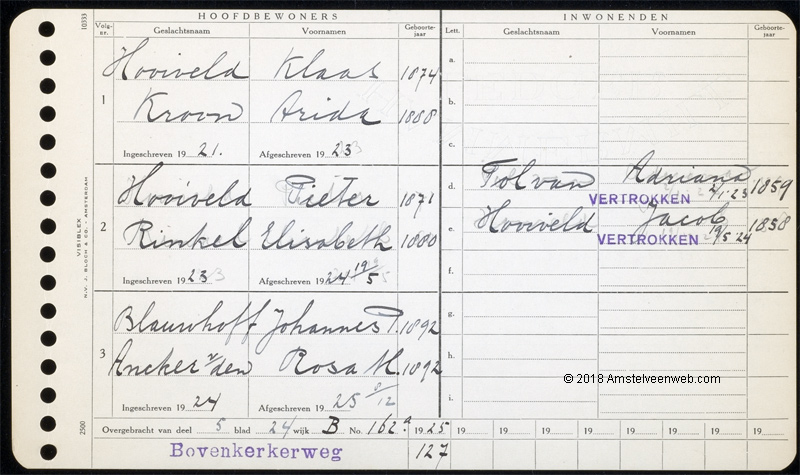 HOOFDBEWONERS
Volg-nr. Geslachtsnaam Voornamen Geboorte-jaar
1 Hooiveld Klaas 1874
Kroon Arida 1888
Ingeschreven 1921. Afgeschreven 1923
Hooiveld Pieter 1871
2 Rinkel Elisabeth 1880
Ingeschreven 1923 Afgeschreven 1924 19/5
Blauwhoff Johannes P. 1892
3 Ancker v/den Rosa M. 1892
Ingeschreven 1924 Afgeschreven 1925 /12
INWONENDEN
Lett. Geslachtsnaam Voornamen Geboorte-jaar
a.
b.
c.
d. Tol van Adriana 1859
VERTROKKEN 2/1-23
e. Hooiveld Jacob 1858
VERTROKKEN 19/5 24
f.
g.
h.
i.
© 2018 Amstelveenweb.com
Overgebracht van deel 5 blad 24 wijk B No. 162a 1925 19 19 19 19 19 19 19 19
Bovenkerkerweg 127
10333
VISIBLEX
N.V. J. BLOCH & CO. - AMSTERDAM
2500